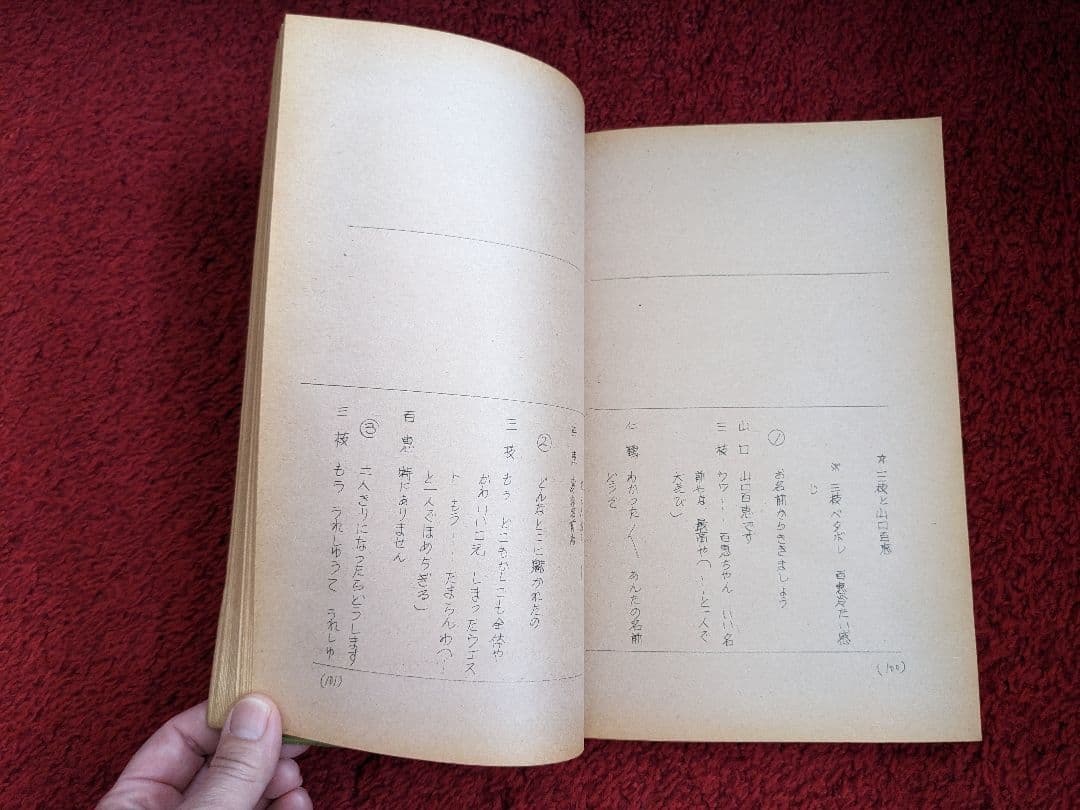 ☆三枝と山口百恵
※三枝ベタボレ 百恵冷たい感
じ
①
お名前からききましょう
山口 山口百恵です
三枝 ワァ‥‥ 百恵ちゃん いい名
前やな 最高や(‥‥と一人で
大さび)
仁鶴 わかった〱 あんたの名前
どうぞ
(100)
②
どんなとこに魅かれたの
三枝 もう どこもかしこも全体や
かわいいこえ しまったウエス
ト もう‥‥ たまらんわ(‥
と一人でほめちぎる)
百恵 特にありません
③
二人きりになったらどうします
三枝 もう うれしゅうて うれしゅ
(101)